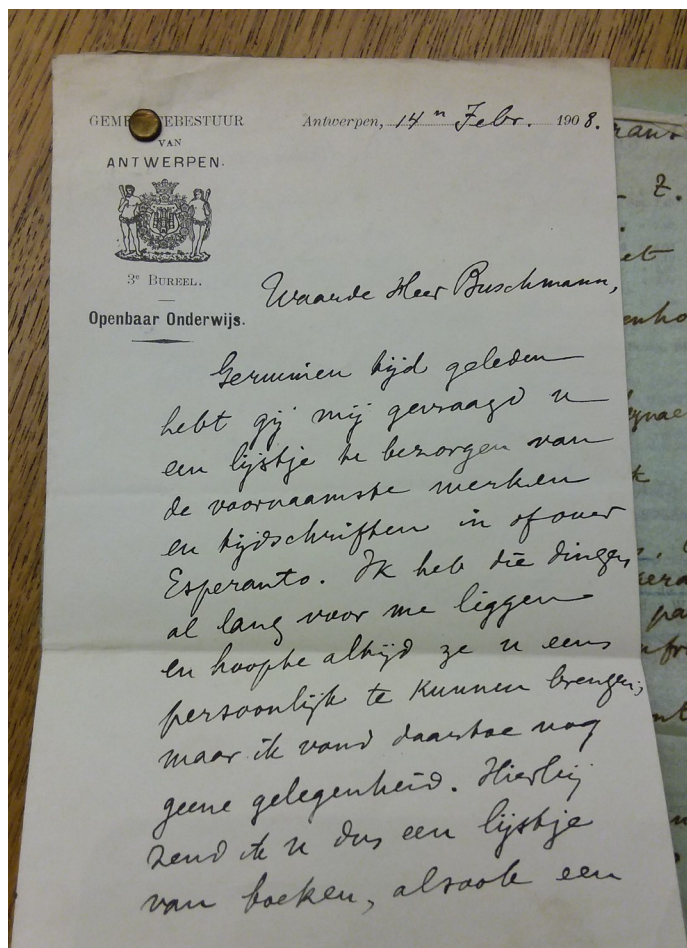 GEMEENTEBESTUUR
VAN
ANTWERPEN.
Antwerpen, 14n Febr. 1908.
3e BUREEL.
Openbaar Onderwijs.
Waarde Heer Buschmann,
Geruimen tijd geleden
hebt gij mij gevraagd u
een lijstje te bezorgen van
de voornaamste werken
en tijdschriften in of over
Esperanto. Ik heb die dingen
al lang voor me liggen
en hoopte altijd ze u eens
persoonlijk te kunnen brengen;
maar ik vond daartoe nog
geene gelegenheid. Hierbij
zend ik u dus een lijstje
van boeken, alsook een